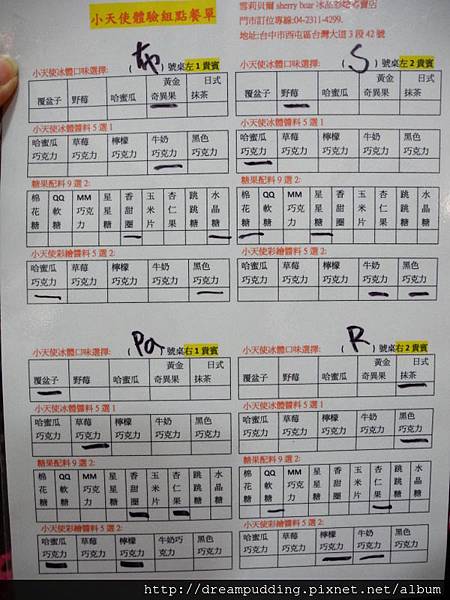 小天使體驗組點餐單
雪莉貝爾 sherry bear 冰品彩繪專賣店
門市訂位專線:04-2311-4299.
地址:台中市西屯區台灣大道 3 段 42 號
小天使冰體口味選擇: ( 布 )號桌左 1 貴賓
覆盆子 野莓 哈蜜瓜 黃金奇異果 日式抹茶
小天使冰體醬料 5 選 1
哈蜜瓜巧克力 草莓巧克力 檸檬巧克力 牛奶巧克力 黑色巧克力
糖果配料 9 選 2:
棉花糖 QQ軟糖 MM巧克力 星星糖 香甜圈 玉米片 杏仁果 跳跳糖 水晶糖
小天使彩繪醬料 5 選 2:
哈蜜瓜巧克力 草莓巧克力 檸檬巧克力 牛奶巧克力 黑色巧克力
小天使冰體口味選擇: ( S )號桌左 2 貴賓
覆盆子 野莓 哈蜜瓜 黃金奇異果 日式抹茶
小天使冰體醬料 5 選 1
哈蜜瓜巧克力 草莓巧克力 檸檬巧克力 牛奶巧克力 黑色巧克力
糖果配料 9 選 2:
棉花糖 QQ軟糖 MM巧克力 星星糖 香甜圈 玉米片 杏仁果 跳跳糖 水晶糖
小天使彩繪醬料 5 選 2:
哈蜜瓜巧克力 草莓巧克力 檸檬巧克力 牛奶巧克力 黑色巧克力
小天使冰體口味選擇: ( Pa )號桌右 1 貴賓
覆盆子 野莓 哈蜜瓜 黃金奇異果 日式抹茶
小天使冰體醬料 5 選 1
哈蜜瓜巧克力 草莓巧克力 檸檬巧克力 牛奶巧克力 黑色巧克力
糖果配料 9 選 2:
棉花糖 QQ軟糖 MM巧克力 星星糖 香甜圈 玉米片 杏仁果 跳跳糖 水晶糖
小天使彩繪醬料 5 選 2:
哈蜜瓜巧克力 草莓巧克力 檸檬巧克力 牛奶巧克力 黑色巧克力
小天使冰體口味選擇: ( R )號桌右 2 貴賓
覆盆子 野莓 哈蜜瓜 黃金奇異果 日式抹茶
小天使冰體醬料 5 選 1
哈蜜瓜巧克力 草莓巧克力 檸檬巧克力 牛奶巧克力 黑色巧克力
糖果配料 9 選 2:
棉花糖 QQ軟糖 MM巧克力 星星糖 香甜圈 玉米片 杏仁果 跳跳糖 水晶糖
小天使彩繪醬料 5 選 2:
哈蜜瓜巧克力 草莓巧克力 檸檬巧克力 牛奶巧克力 黑色巧克力
http://dreampudding.pixnet.net/album